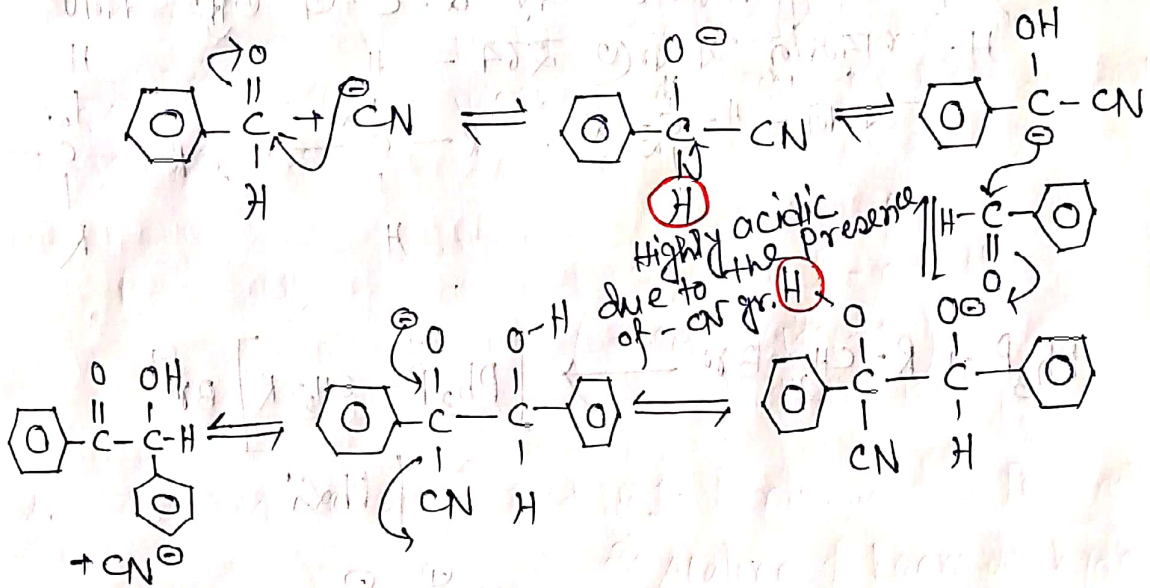 O
C + ⊖CN ⇌
H
O⊖
C - CN ⇌
H
OH
C - CN
⊖
Highly acidic
due to the presence
of - CN gr.
H - C
O
H
O O⊖
C - C
CN H
⊖
O O-H
C - C
CN H
O OH
C - C - H
+ CN⊖